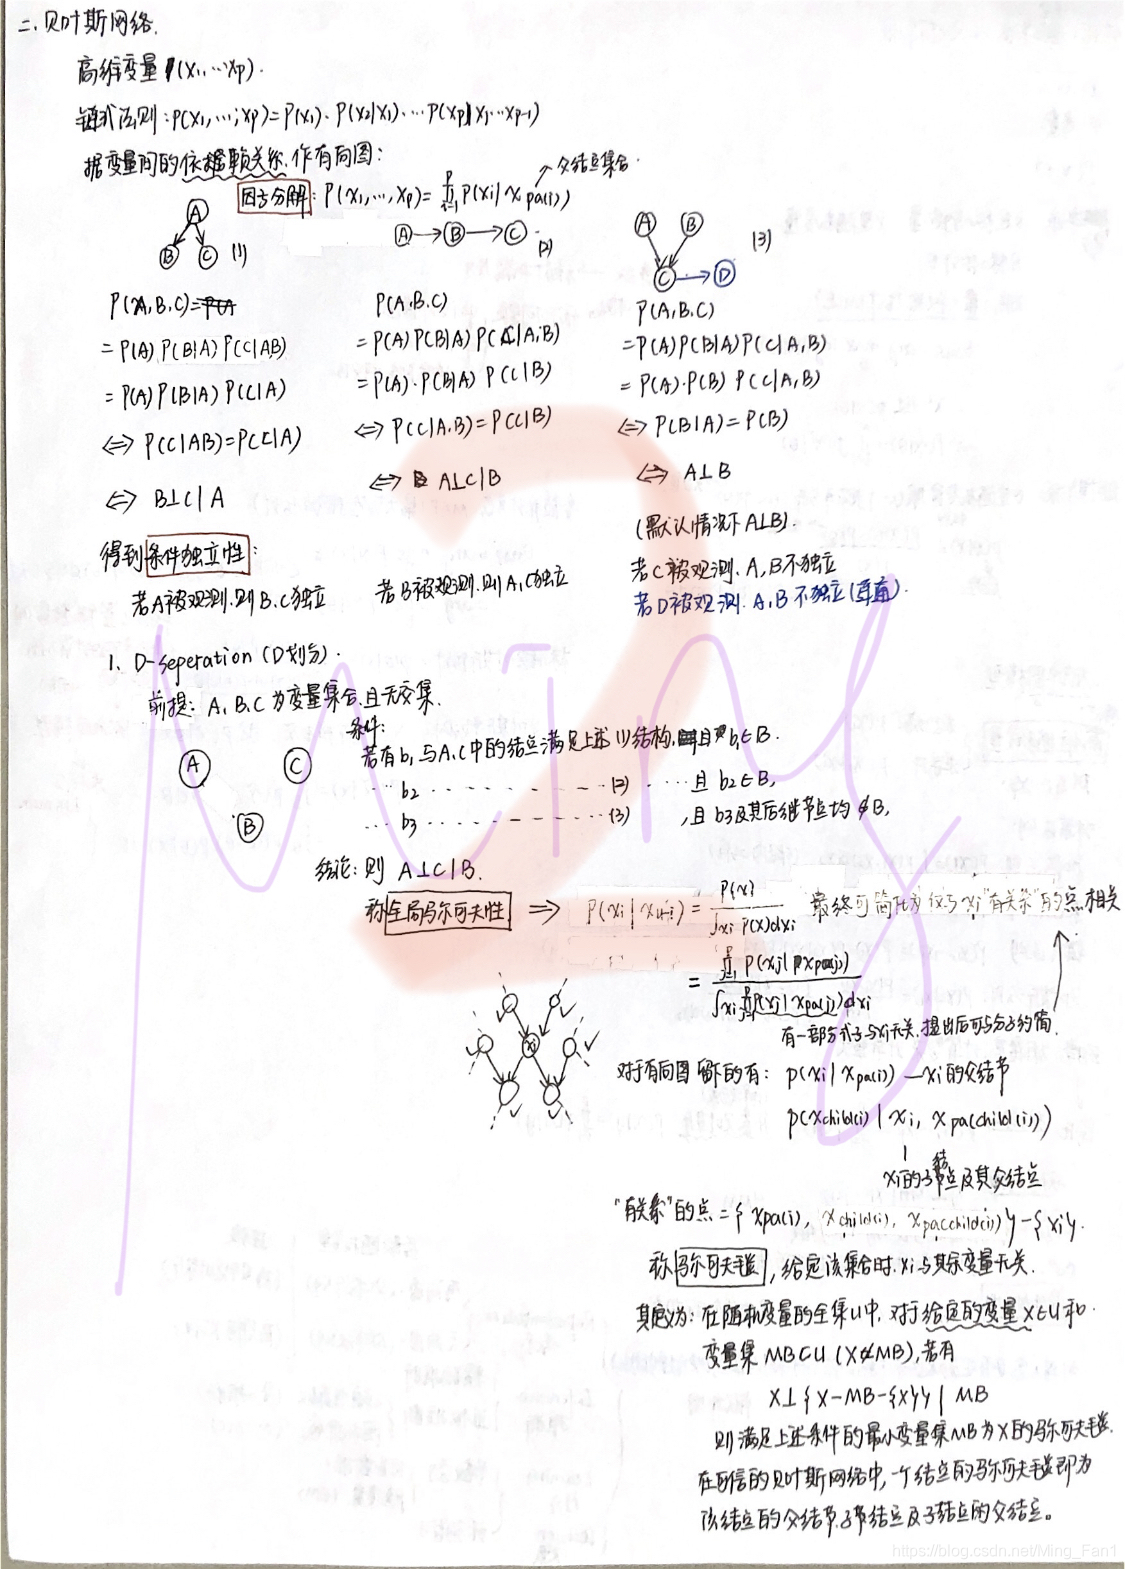 二.贝叶斯网络.
高维变量 P(x₁,…xp).
链式法则:P(x₁,…,xp)=P(x₁)·P(x₂|x₁)…P(xp|x₁…xp-1)
据变量间的依赖关系.作有向图:
因子分解: P(x₁,…,xp)= ∏ᵖᵢ₌₁ P(xi|x pa(i)) ↗父结点集合.
A B C (1)
A→B→C (2)
A B C→D (3)
P(A,B,C)
=P(A)P(B|A)P(C|AB)
=P(A)P(B|A)P(C|A)
⇔ P(C|AB)=P(C|A)
⇔ B⊥C|A
P(A,B,C)
=P(A)P(B|A)P(C|A,B)
=P(A)·P(B|A)P(C|B)
⇔ P(C|A,B)=P(C|B)
⇔ A⊥C|B
P(A,B,C)
=P(A)P(B|A)P(C|A,B)
=P(A)·P(B)P(C|A,B)
⇔ P(B|A)=P(B)
⇔ A⊥B
(默认情况下A⊥B).
得到条件独立性:
若A被观测.则B、C独立
若B被观测.则A,C独立
若C被观测.A,B不独立
若D被观测.A,B不独立
1. D-seperation (D划分).
前提: A,B,C为变量集合.且无交集.
A C
B
条件:
若有b₁与A,C中的结点满足上述(1)结构,且b₁∈B.
… b₂ … (2) … 且b₂∈B,
… b₃ … (3) ,且b₃及其后继节点均∉B,
结论: 则 A⊥C|B.
称全局马尔可夫性 ⇒ P(xi|x-i)= P(x) / ∫xi P(x)dxi 最终可简化为仅与xi"有关系"的点相关
= ∏ᵖⱼ₌₁ P(xj|xpa(j)) / ∫xi ∏ᵖⱼ₌₁ P(xj|xpa(j))dxi
有一部分式子与xi无关.提出后可与分子约简.
xi
对于有向图 留下的有: P(xi|xpa(i)) —xi的父结节
P(xchild(i)|xi, xpa(child(i)))
xi的子结点及其父结点
"有关系"的点={xpa(i), xchild(i), xpa(child(i))}-{xi}.
称马尔可夫毯,给定该集合时.xi与其余变量无关.
其意为: 在随机变量的全集U中.对于给定的变量X∈U和
变量集MB⊂U(X∉MB),若有
X⊥{X-MB-{X}}|MB
则满足上述条件的最小变量集MB为X的马尔可夫毯.
在可信的贝叶斯网络中,一个结点的马尔可夫毯即为
该结点的父结节.子节结点及子结点的父结点。
Ming
2
https://blog.csdn.net/Ming_Fan1